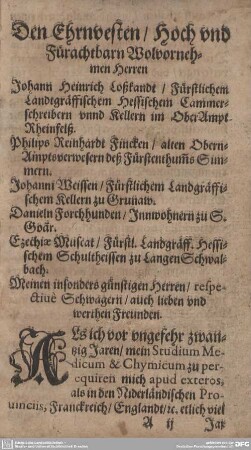 Den Ehrnvesten / Hoch vnd
Fürachtbarn Wolvorneh-
men Herren
Johann Heinrich Loßkandt / Fürstlichem
Landtgräffischem Hessischem Cammer-
schreibern vnnd Kellern im OberAmpt
Rheinfelß.
Philips Reinhardt Fincken / alten Obern-
Amptsverwesern deß Fürstenthumbs Sim-
mern.
Johanni Weissen / Fürstlichem Landgräffi-
schem Kellern zu Grunaw.
Danieln Forchhunden / Innwohnern zu S.
Goär.
Ezechiæ Muscat / Fürstl. Landgräff. Hessi-
schem Schultheissen zu Langen Schwal-
bach.
Meinen insonders günstigen Herren / respe-
ctiuè Schwägern / auch lieben vnd
werthen Freunden.
ALs ich vor vngefehr zwan-
tzig Jaren / mein Studium Me-
dicum & Chymicum zu per-
equiren mich apud exteros,
als in den Niderländischen Pro-
vinciis, Franckreich / Englandt / ꝛc. etlich viel
A ij Jar